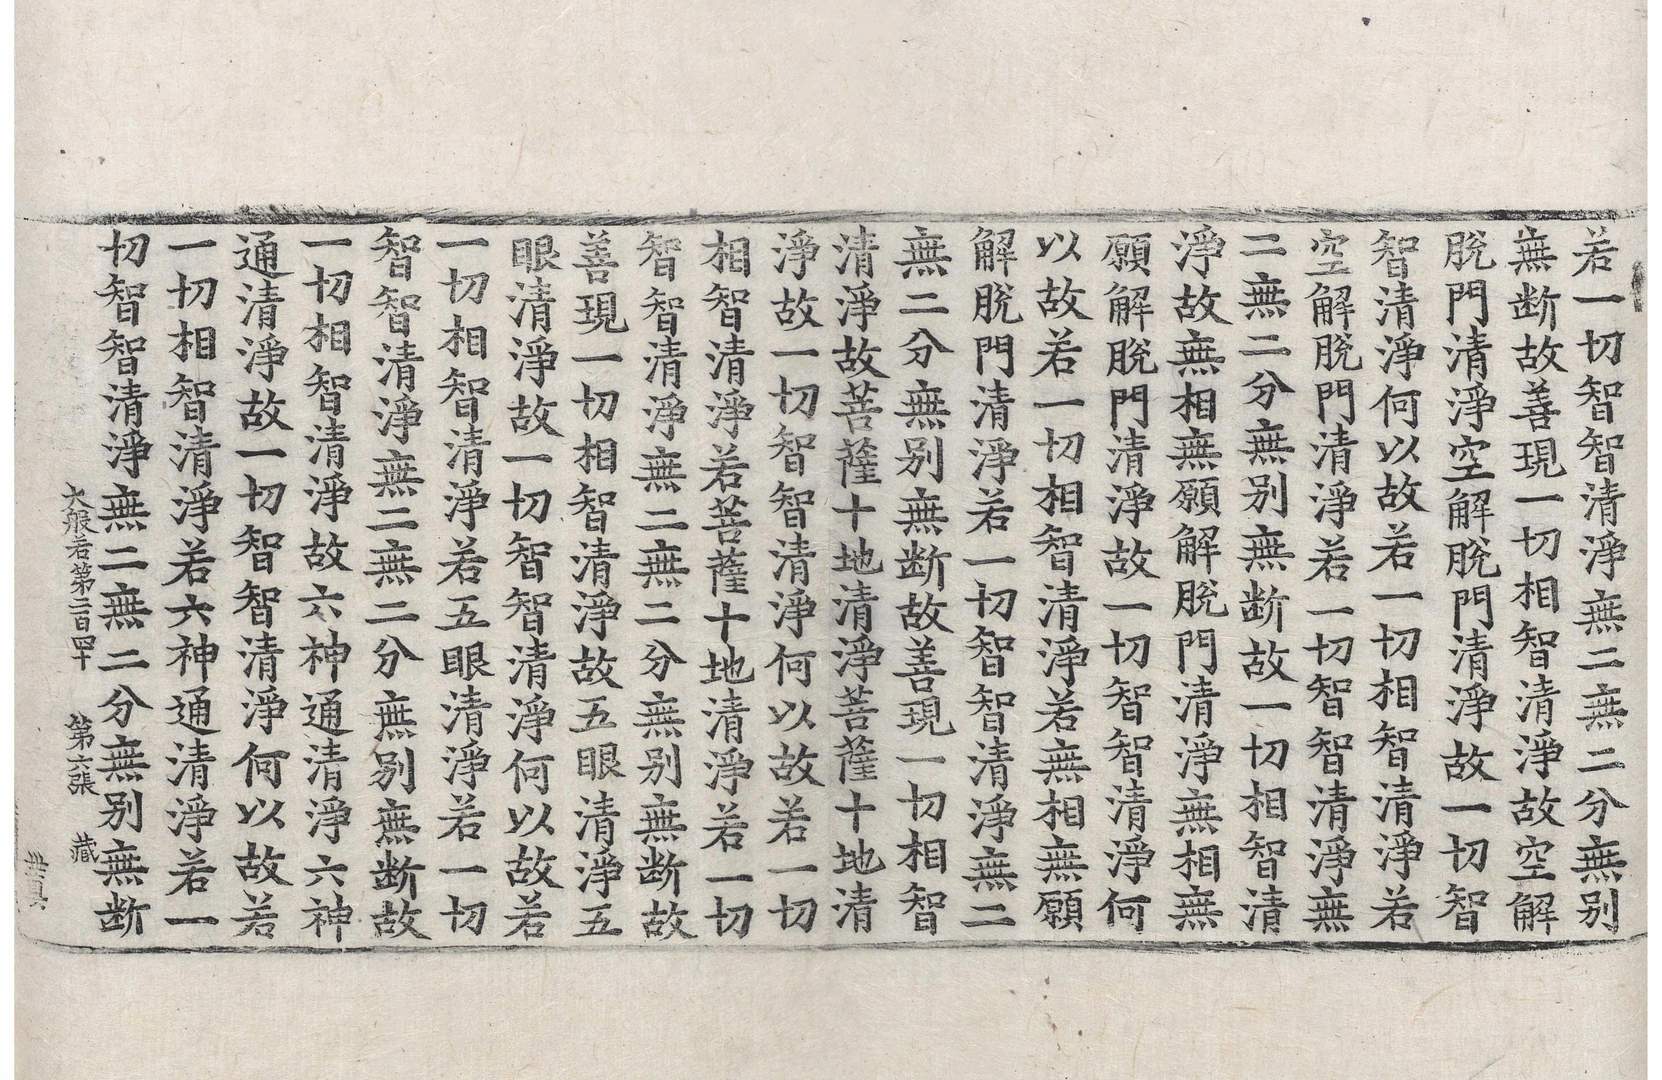 若一切智智清淨無二無二分無别
無断故善現一切相智清淨故空解
脫門清淨空解脫門清淨故一切智
智清淨何以故若一切相智清淨若
空解脫門清淨若一切智智清淨無
二無二分無别無断故一切相智清
淨故無相無願解脫門清淨無相無
願解脫門清淨故一切智智清淨何
以故若一切相智清淨若無相無願
解脫門清淨若一切智智清淨無二
無二分無别無断故善現一切相智
清淨故菩薩十地清淨菩薩十地清
淨故一切智智清淨何以故若一切
相智清淨若菩薩十地清淨若一切
智智清淨無二無二分無别無断故
善現一切相智清淨故五眼清淨五
眼清淨故一切智智清淨何以故若
一切相智清淨若五眼清淨若一切
智智清淨無二無二分無别無断故
一切相智清淨故六神通清淨六神
通清淨故一切智智清淨何以故若
一切相智清淨若六神通清淨若一
切智智清淨無二無二分無别無断
大般若第二百四十 第六張 藏